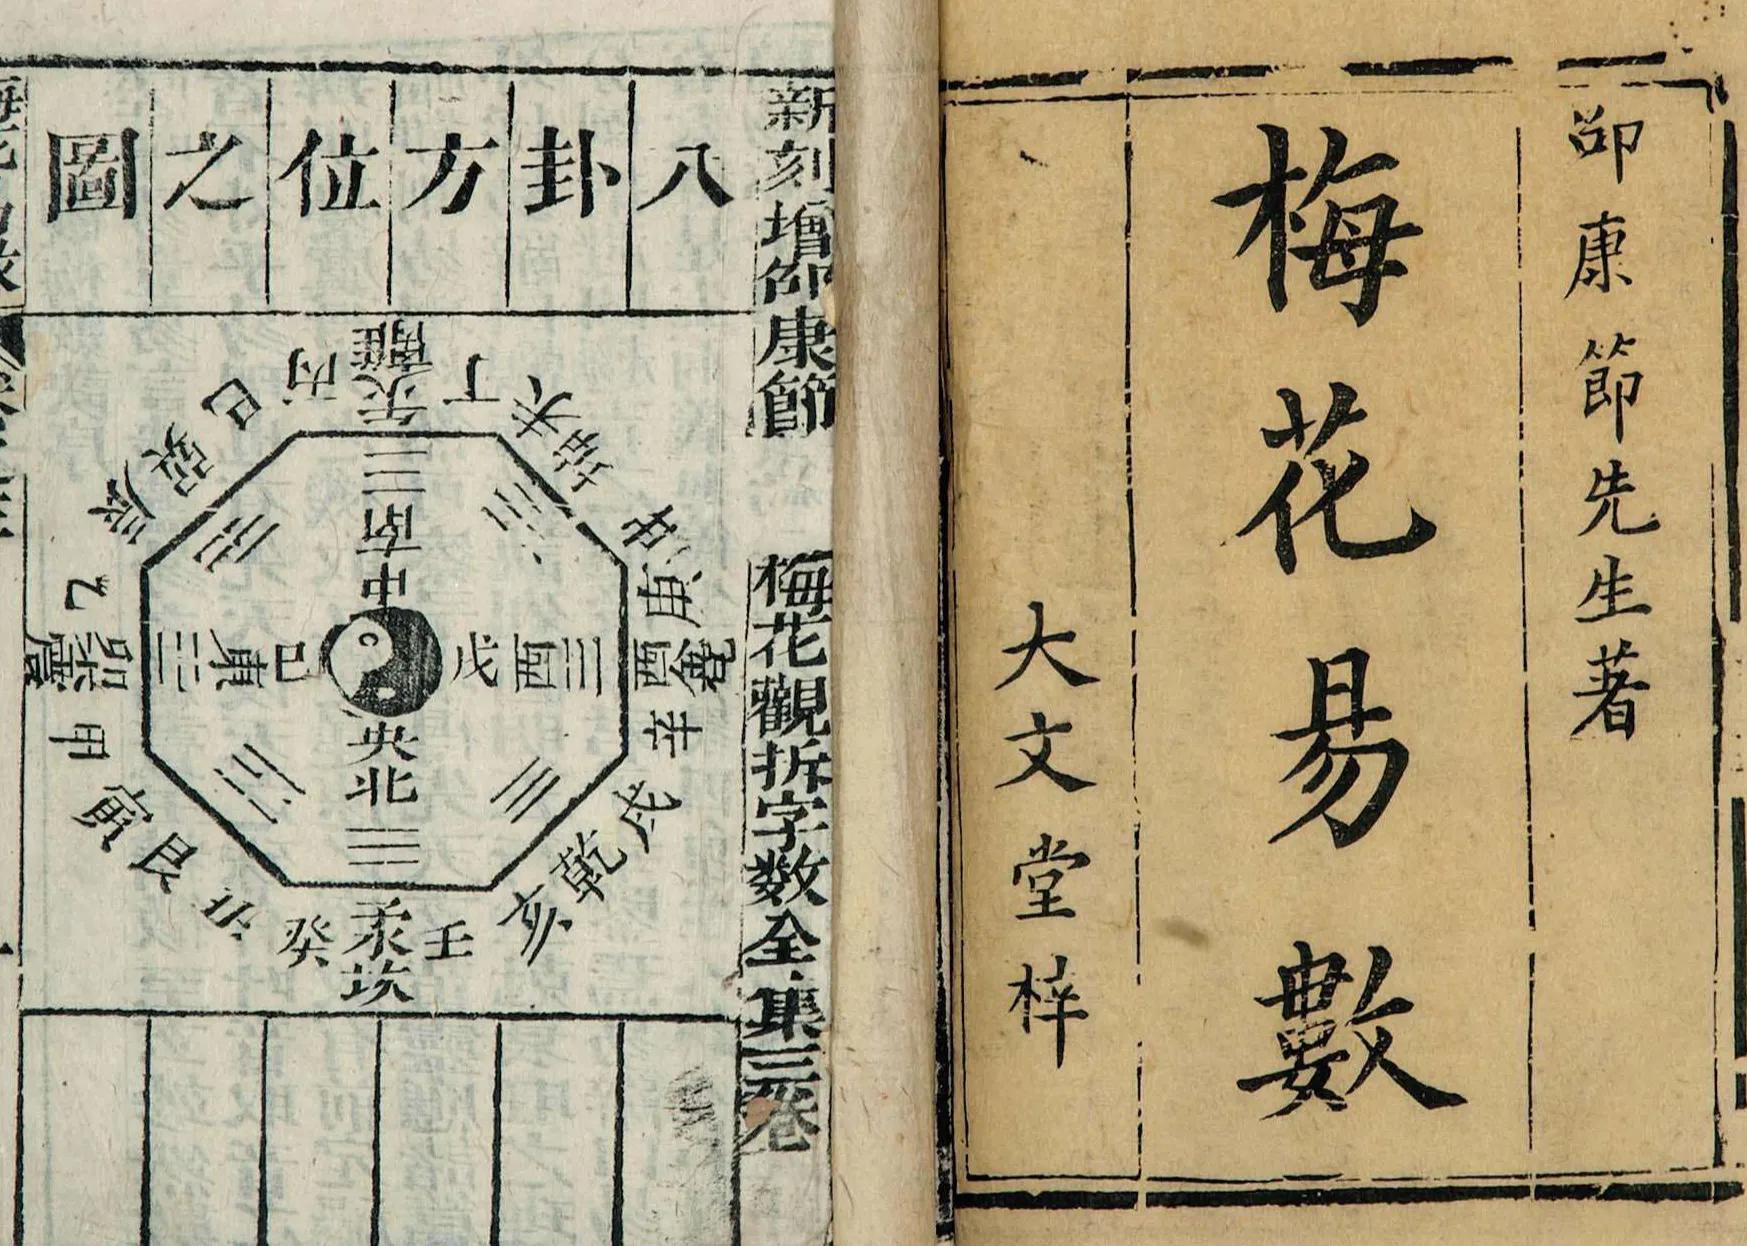 邵康節先生著
梅花易數
大文堂梓
新刻增邵康節
梅花觀拆字数全集三卷
八卦方位之圖
離
丙
丁
未
坤
申
庚
酉
兌
辛
戌
乾
亥
壬
坎
癸
丑
艮
寅
甲
卯
震
乙
辰
巽
巳
南
中
戊
西
央
北
己
東